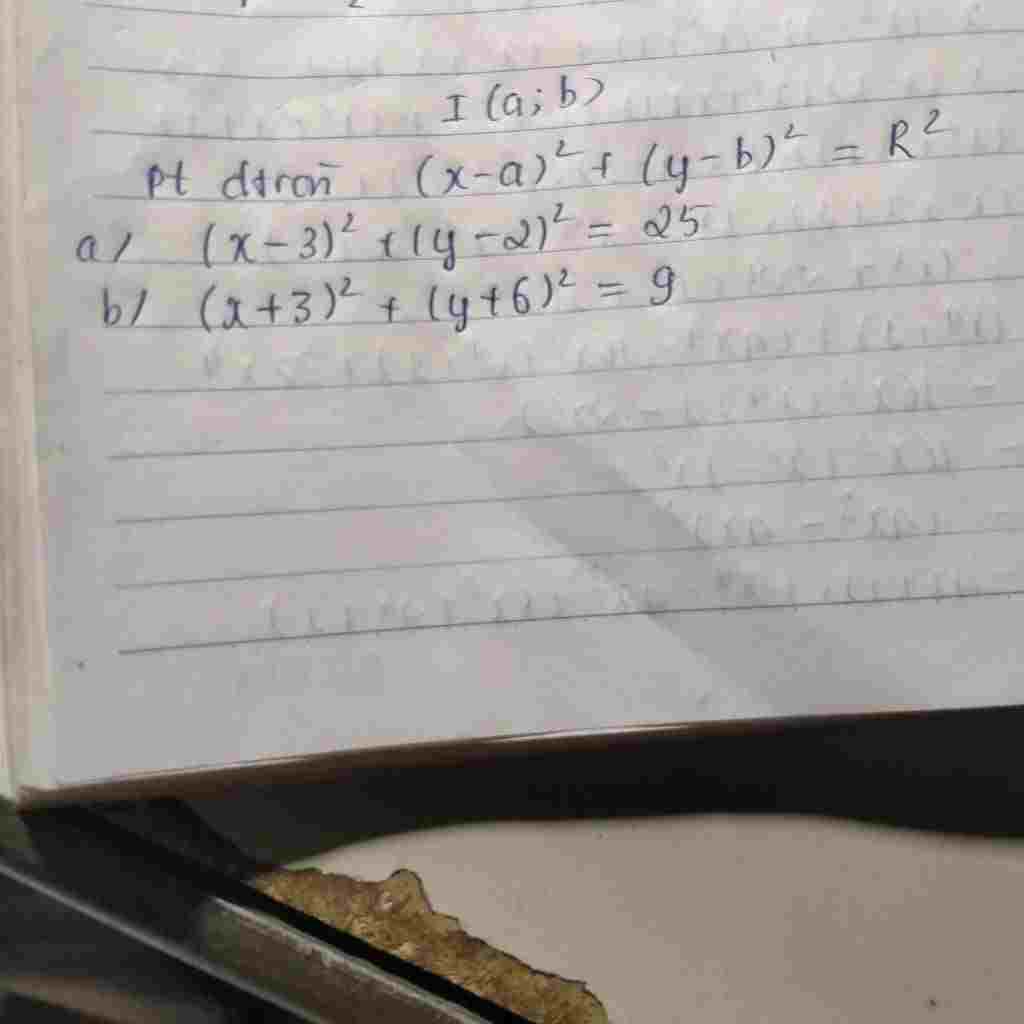 I (a; b)
pt đtròn (x-a)² + (y-b)² = R²
a/ (x-3)² + (y-2)² = 25
b/ (x+3)² + (y+6)² = 9